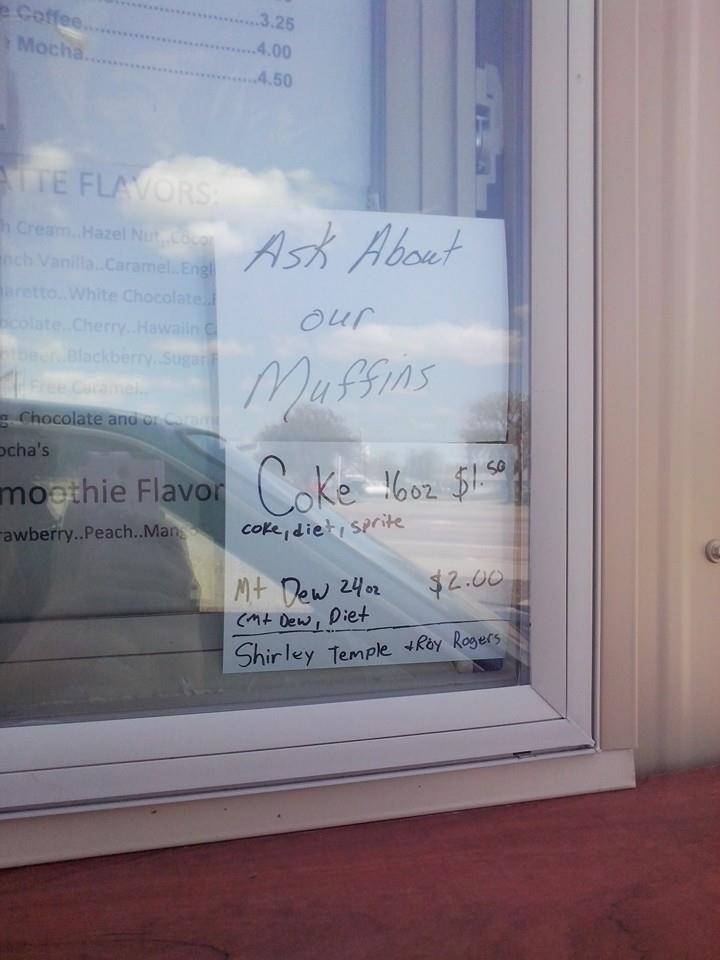 Coffee..............................3.25
Mocha..............................4.00
4.50
ATTE FLAVORS:
h Cream..Hazel Nut..Cocon
nch Vanilla..Caramel..Engli
aretto..White Chocolate..
ocolate..Cherry..Hawaiin C
tbeer..Blackberry..Sugar F
Free Caramel..
g. Chocolate and or Caram
ocha's
moothie Flavor
rawberry..Peach..Mang
Ask About
our
Muffins
Coke 16oz $1.50
coke, diet, sprite
Mt Dew 24oz $2.00
(Mt Dew, Diet
Shirley Temple + Roy Rogers